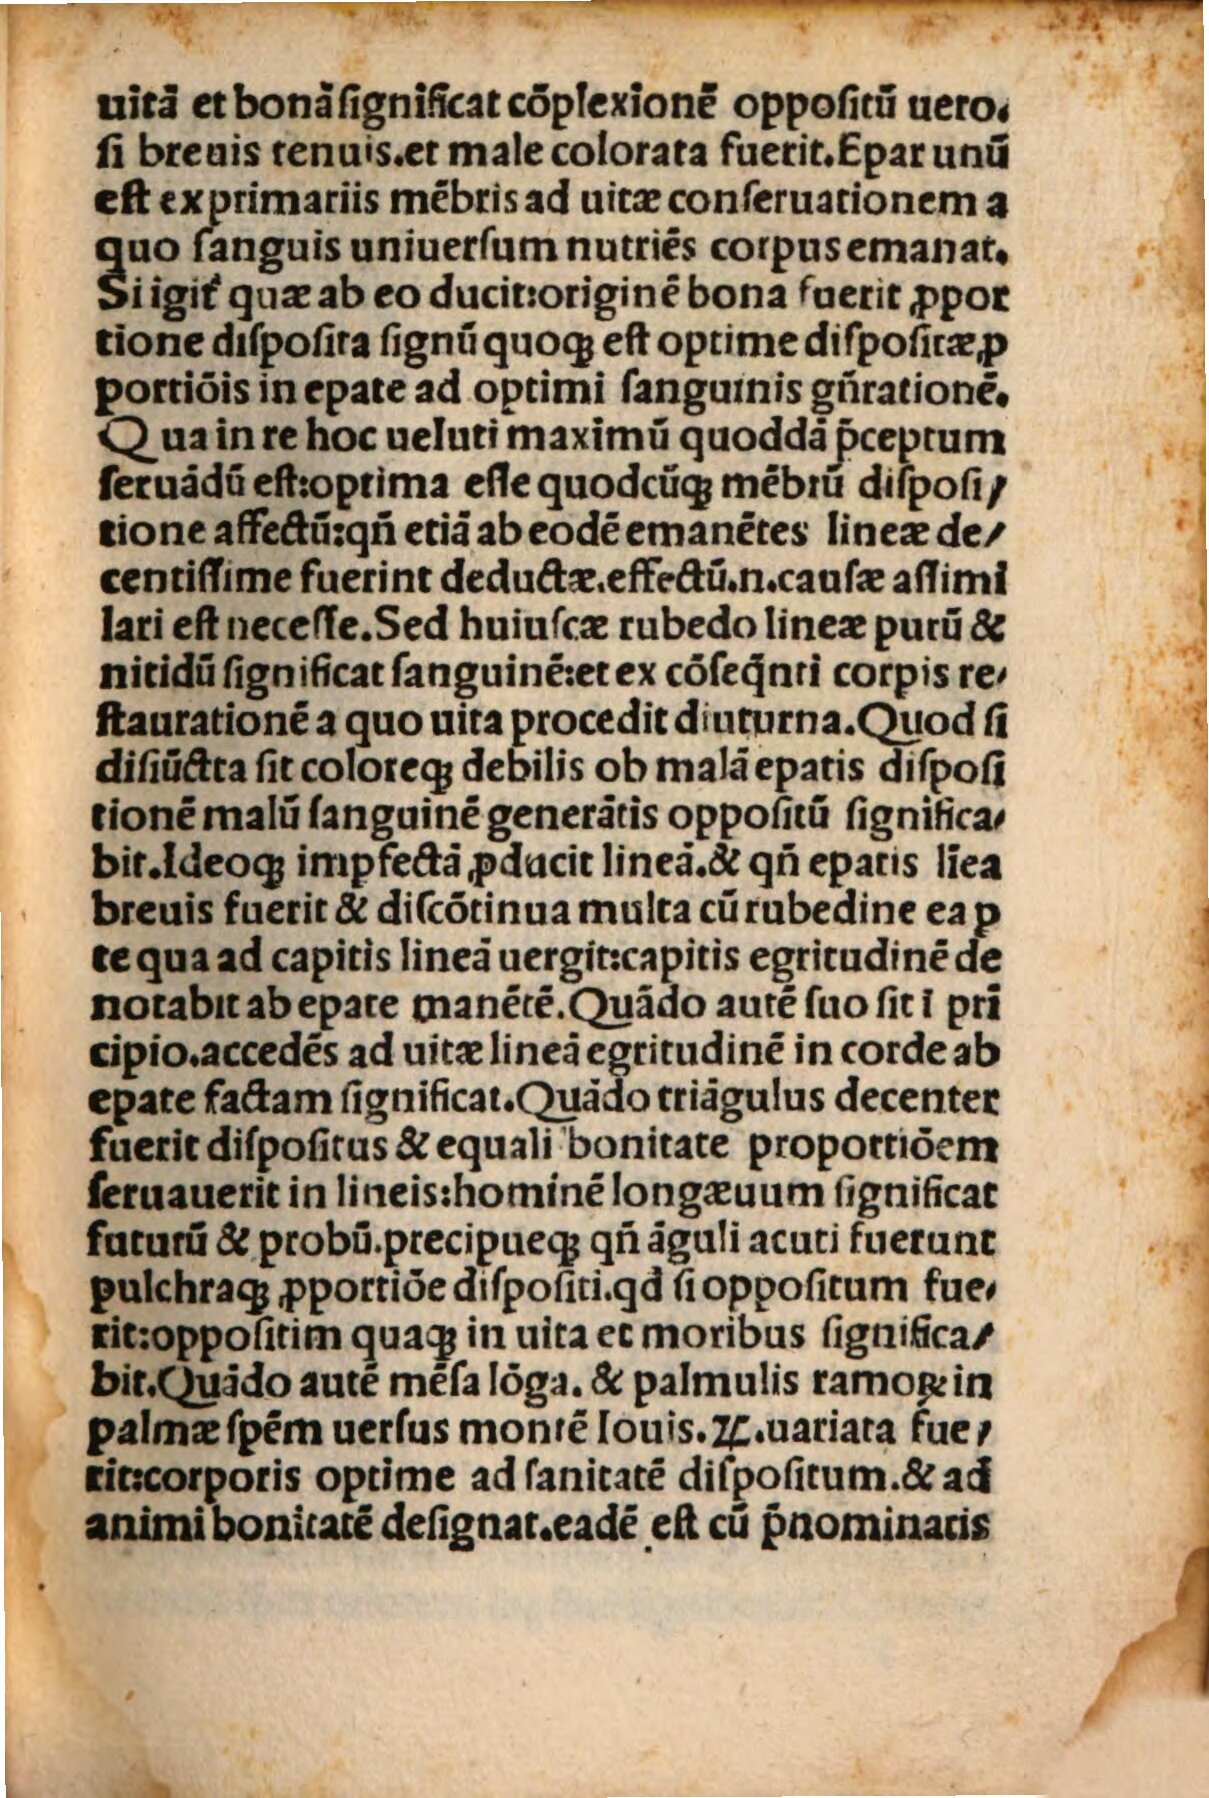 uitā et bonā ſignificat cōplexionē oppoſitū uero.
ſi breuis tenuis.et male colorata fuerit.Epar unū
eſt ex primariis mēbris ad uitæ conſeruationem a
quo ſanguis uniuerſum nutriēs corpus emanat.
Si igit᷑ quæ ab eo ducit:originē bona fuerit ꝓpor
tione diſpoſita ſignū quoqꝫ eſt optime diſpoſitæ ꝓ
portiōis in epate ad optimi ſanguinis gñrationē.
Qua in re hoc ueluti maximū quoddā p̄ceptum
ſeruādū eſt:optima eſſe quodcūqꝫ mēbrū diſpoſi/
tione affectū:qñ etiā ab eodē emanētes lineæ de/
centiſſime fuerint deductæ.effectū.n.cauſæ aſſimi
lari eſt neceſſe.Sed huiuſcæ rubedo lineæ purū &
nitidū ſignificat ſanguinē:et ex cōſeq̄nti corpis re/
ſtaurationē a quo uita procedit diuturna.Quod ſi
diſiūcta ſit coloreqꝫ debilis ob malā epatis diſpoſi
tionē malū ſanguinē generātis oppoſitū ſignifica/
bit.Ideoqꝫ impfectā ꝓducit lineā.& qñ epatis līea
breuis fuerit & diſcōtinua multa cū rubedine ea p
te qua ad capitis lineā uergit:capitis egritudinē de
notabit ab epate manētē.Quādo autē ſuo ſit ī prī
cipio.accedēs ad uitæ lineā egritudinē in corde ab
epate factam ſignificat.Quādo triāgulus decenter
fuerit diſpoſitus & equali bonitate proportiōem
ſeruauerit in lineis:hominē longæuum ſignificat
futurū & probū.precipueqꝫ qñ āguli acuti fuerunt
pulchraqꝫ ꝓportiōe diſpoſiti.qđ ſi oppoſitum fue/
rit:oppoſitim quaqꝫ in uita et moribus ſignifica/
bit.Quādo autē mēſa lōga. & palmulis ramoꝝ in
palmæ ſpēm uerſus montē Iouis.♃.uariata fue/
rit:corporis optime ad ſanitatē diſpoſitum.& ad
animi bonitatē deſignat.eadē eſt cū p̄nominatis